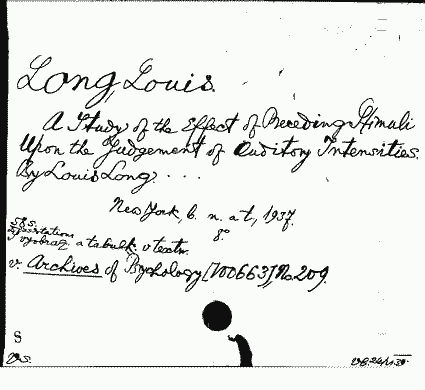 Long, Louis.
A Study of the Effect of Preceding Stimuli
Upon the Judgement of Auditory Intensities.
By Louis Long. . . .
New York, b. n. a t., 1937.
8°
a tabulk. v textu.
v. Archives of Psychology [700663] No 209.
S